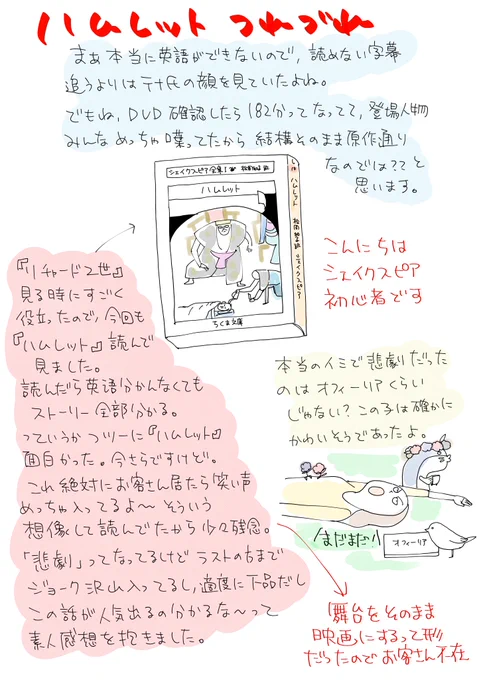 ハムレット つれづれ
まぁ本当に英語ができないので、読めない字幕
追うよりはテナ氏の顔を見ていたよね。
でもね、DVD確認したら182分ってなってて、登場人物
みんなめっちゃ喋ってたから結構そのまま原作通り
なのでは??と
思います。
シェイクスピア全集1
ハムレット
ちくま文庫
ハムレット
シェイクスピア
こんにちは
シェイクスピア
初心者です
『リチャード2世』
見る時にすごく
役立ったので、今回も
『ハムレット』読んで
見ました。
読んだら英語分かんなくても
ストーリー全部分かる。
っていうかフツーに『ハムレット』
面白かった。今さらですけど。
これ絶対にお客さん居たら笑い声
めっちゃ入ってるよ〜そういう
想像して読んでたから少々残念。
「悲劇」ってなってるけどラストの方まで
ジョーク沢山入ってるし、適度に下品だし
この話が人気出るの分かるな〜って
素人感想を抱きました。
本当のイミで悲劇だった
のはオフィーリアくらい
じゃない?この子は確かに
かわいそうであったよ。
まだまだ!
オフィーリア
「舞台をそのまま
映画にするって形
だったのでお客さん不在